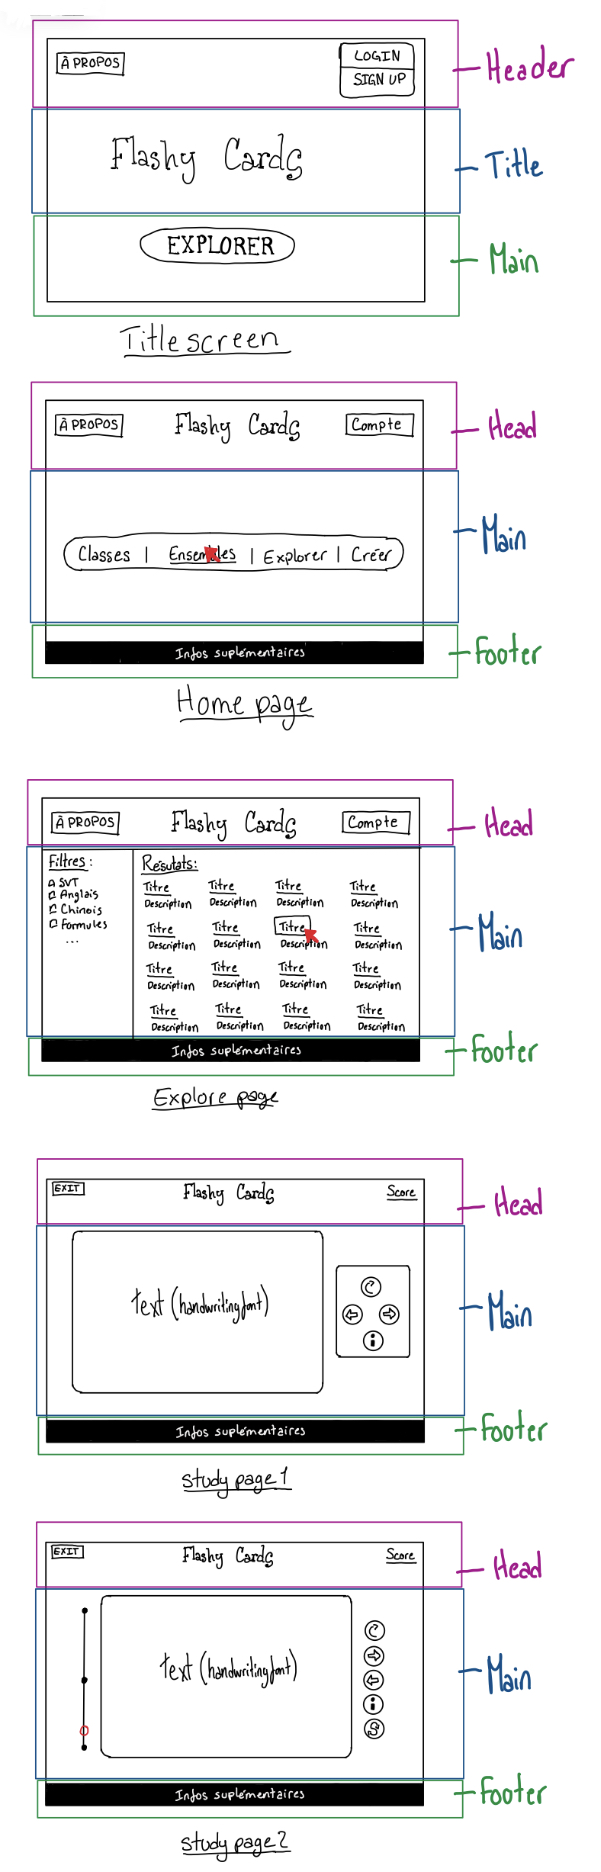 À PROPOS
LOGIN
SIGN UP
Header
Flashy Cards
Title
EXPLORER
Main
Title screen
À PROPOS
Flashy Cards
Compte
Head
Classes | Ensembles | Explorer | Créer
Main
Infos suplémentaires
Footer
Home page
À PROPOS
Flashy Cards
Compte
Head
Filtres :
SVT
Anglais
Chinois
Formules
...
Résutats:
Titre Titre Titre Titre
Description Description Description Description
Titre Titre Titre Titre
Description Description Description Description
Titre Titre Titre Titre
Description Description Description Description
Titre Titre Titre Titre
Description Description Description Description
Main
Infos suplémentaires
Footer
Explore page
EXIT
Flashy Cards
Score
Head
text (handwriting font)
i
Main
Infos suplémentaires
Footer
study page 1
EXIT
Flashy Cards
Score
Head
text (handwriting font)
i
Main
Infos suplémentaires
Footer
study page 2